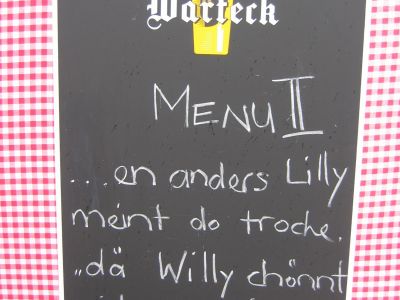 Warteck
MENU II
...en anders Lilly
meint do troche.
„dä Willy chönnt